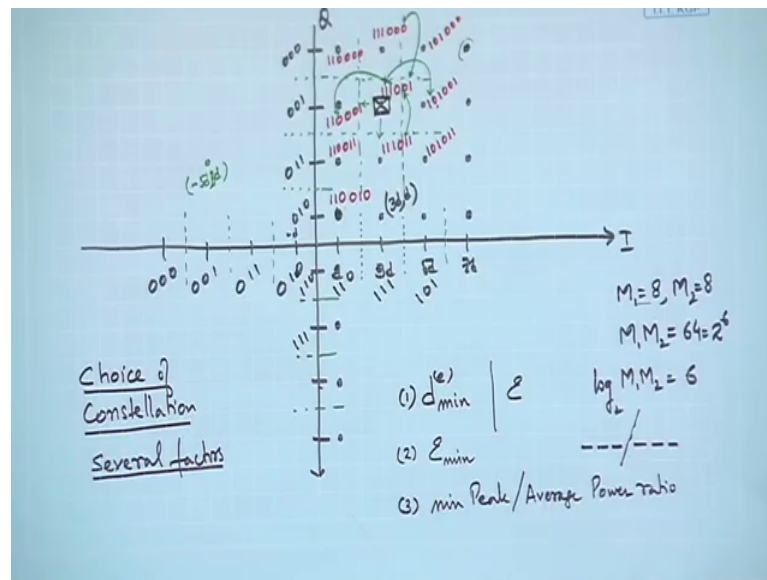 Q
111000
000 110000 101000
111001
001 110001 101001
011 110011 111011 101011
(-5d,d)
010 110010 (3d,d)
I
000 001 011 010 110 d 3d 5d 7d
110 111 101
111
M₁=8, M₂=8
M₁M₂=64=2⁶
log₂ M₁M₂=6
Choice of
Constellation
Several factors
(1) d(e)min | ε
(2) εmin
--- / ---
(3) min Peak/Average Power ratio